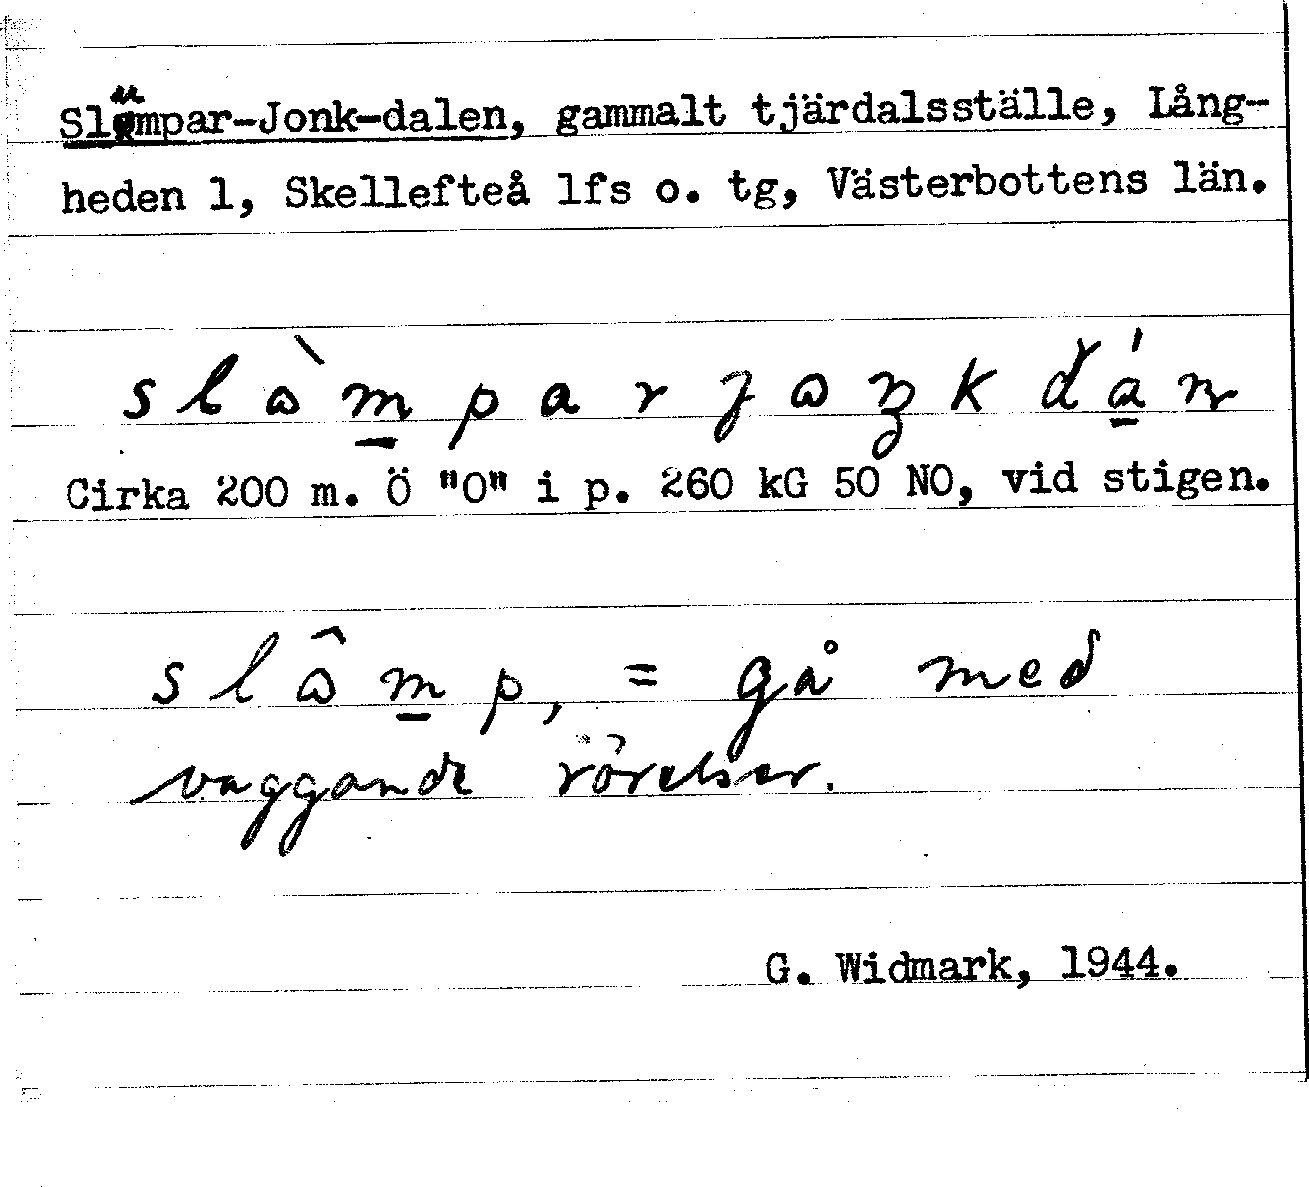 Slumpar-Jonk-dalen, gammalt tjärdalsställe, Lång-
heden 1, Skellefteå lfs o. tg, Västerbottens län.
Cirka 200 m. Ö "O" i p. 260 kG 50 NO, vid stigen.
= gå med
vaggande rörelser.
G. Widmark, 1944.